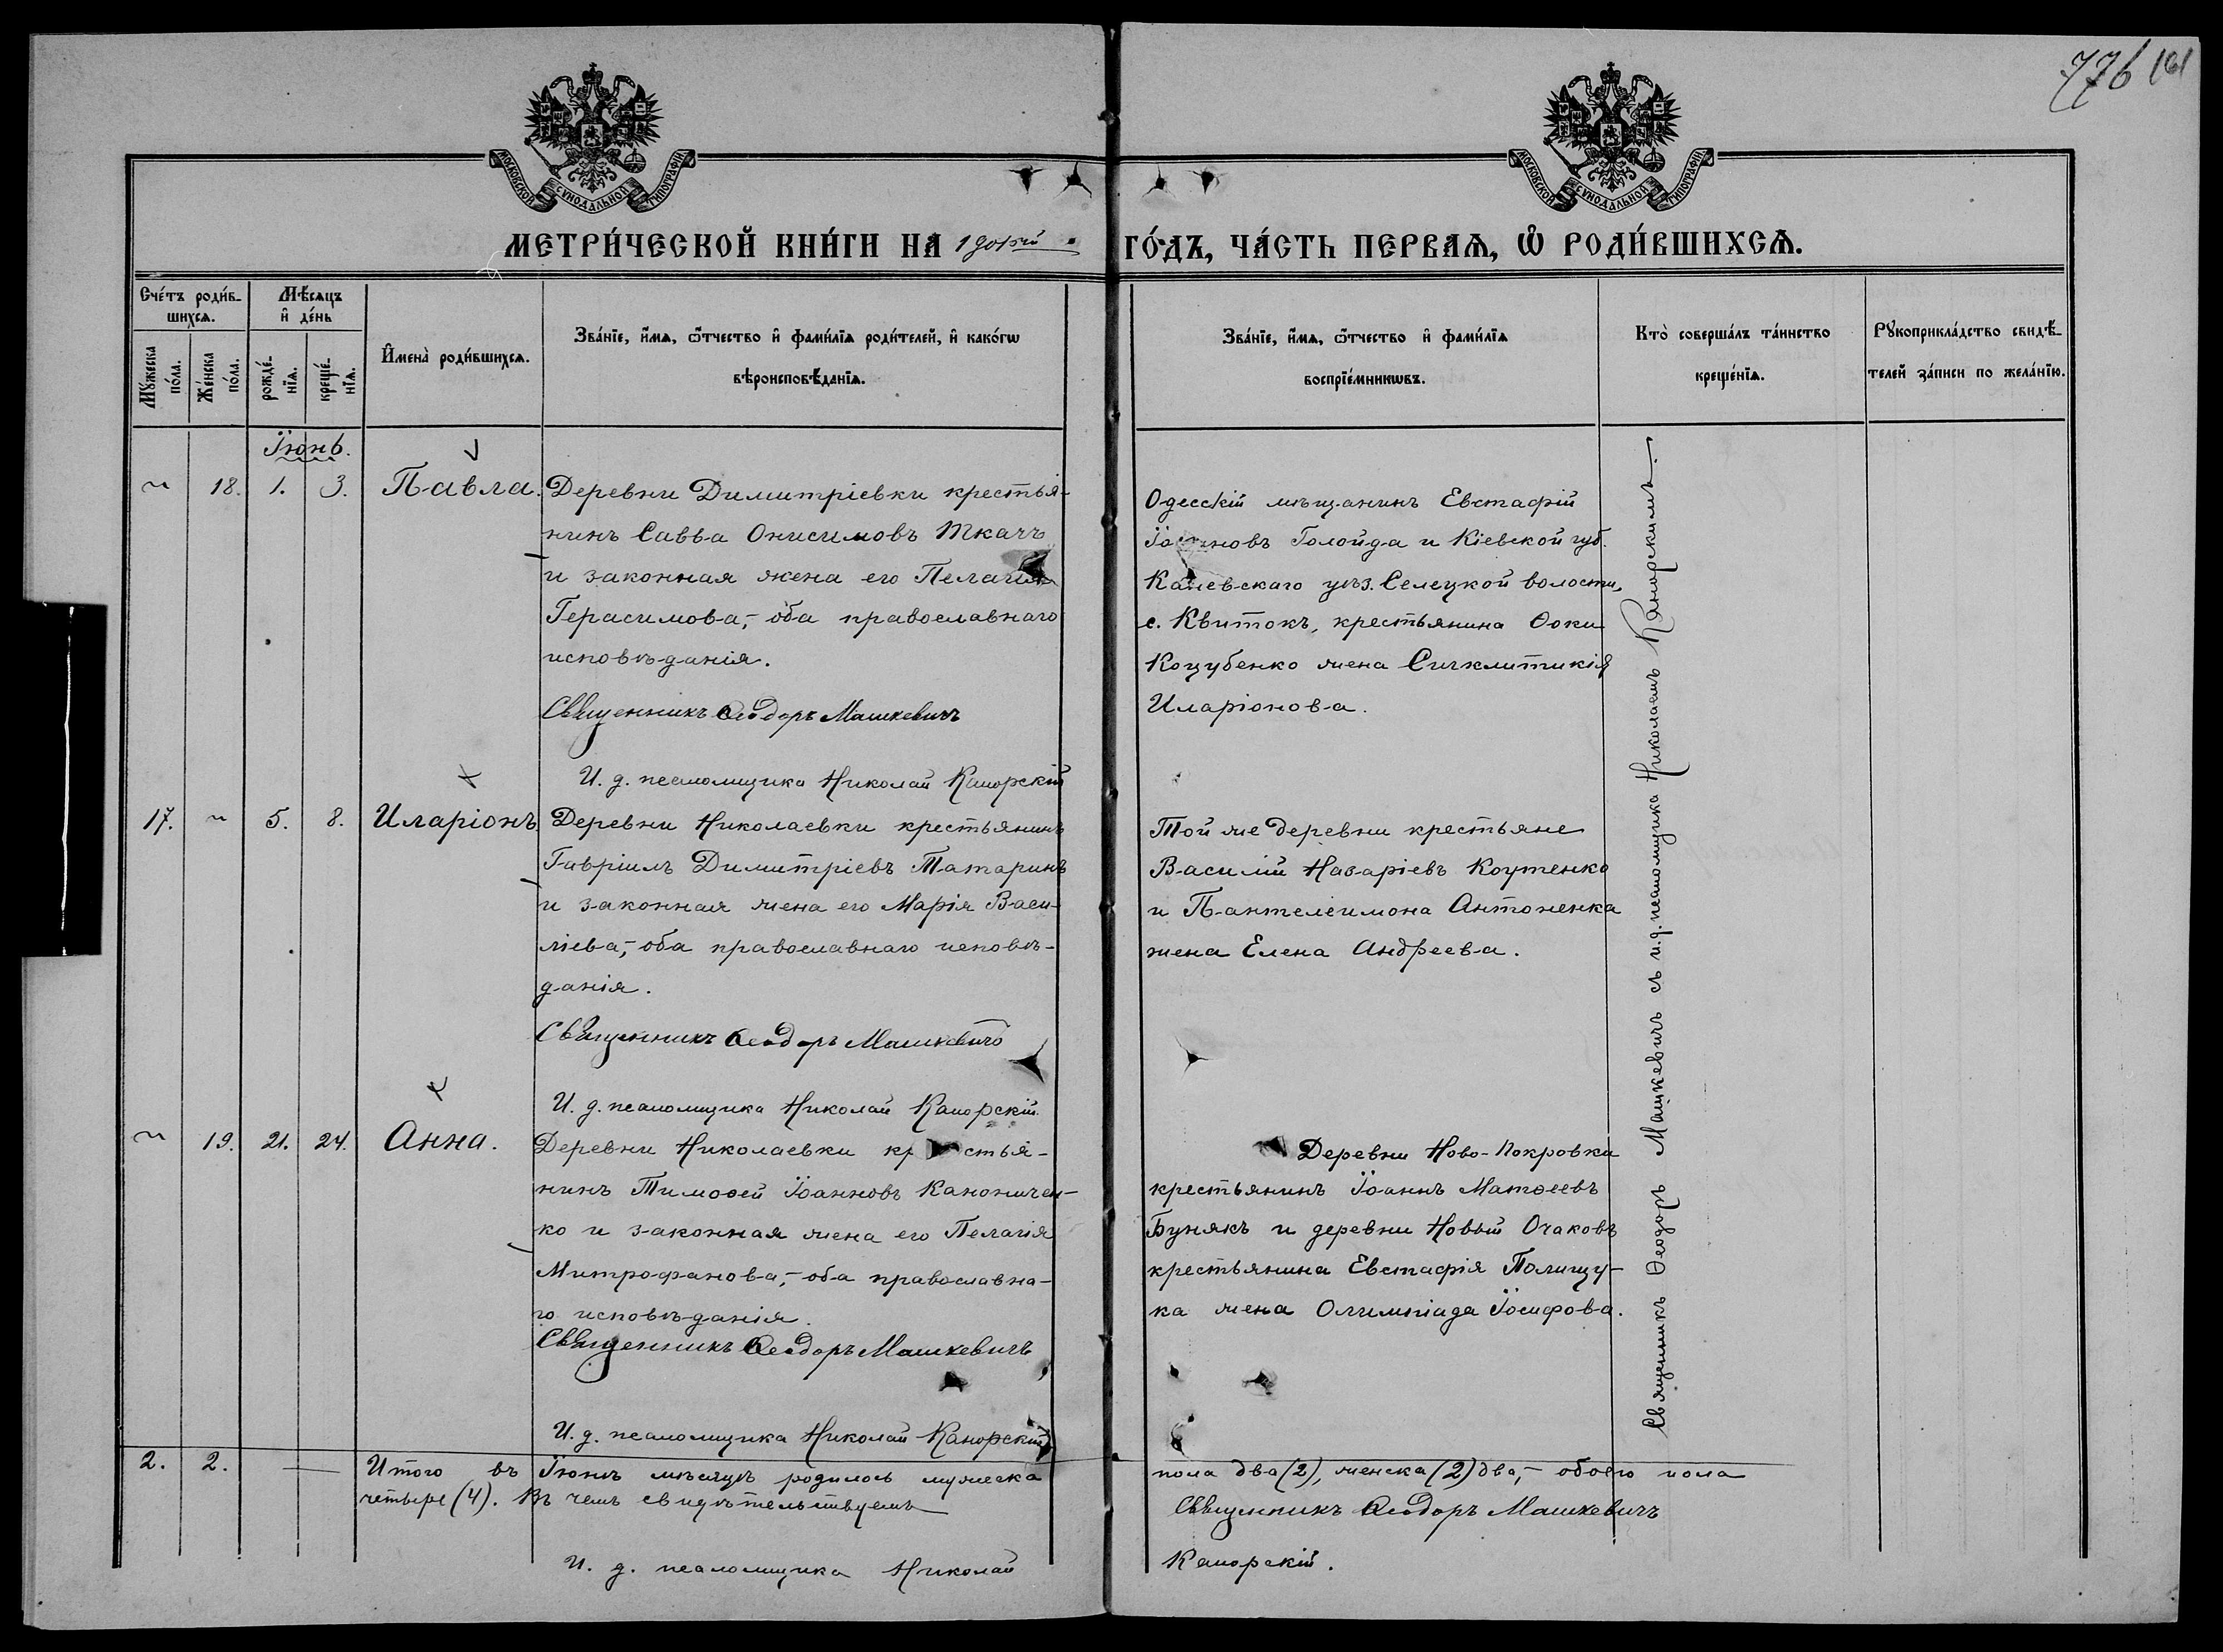 776 161
МОСКОВСКОЙ СѴНОДАЛЬНОЙ ТИПОГРАФІИ
МОСКОВСКОЙ СѴНОДАЛЬНОЙ ТИПОГРАФІИ
МЕТРИ́ЧЕСКОЙ КНИ́ГИ НА 1901ый ГО́ДЪ, ЧА́СТЬ ПЕРВАѦ, Ѿ РОДИ́ВШИХСѦ.
Сче́тъ роди́в-
шихсѧ.
Мꙋ́жеска
по́ла.
Же́нска
по́ла.
Мѣ́сѧцъ
и҆ де́нь
рожде́-
нїѧ.
креще́-
нїѧ.
И҆мена̀ роди́вшихсѧ.
Зва́нїе, и҆́мѧ, ѻ҆́тчество и҆ фами́лїѧ роди́телей, и҆ како́гѡ
вѣроисповѣ́данїѧ.
Зва́нїе, и҆́мѧ, ѻ҆́тчество и҆ фами́лїѧ
воспрїе́мникѡвъ.
Кто̀ соверша́лъ та́инство
креще́нїѧ.
Рꙋкоприкла́дство свидѣ́-
телей за́писи по жела́нїю.
Іюнь.
18. 1. 3. Павла.
Деревни Димитріевки крестья-
нинъ Савва Онисимовъ Ткачъ
и законная жена его Пелагія
Герасимова,- оба православнаго
исповѣданія.
Священникъ Ѳеодоръ Машкевичъ
И. д. псаломщика Николай Капорскій
Одесскій мѣщанинъ Евстафій
Іоанновъ Голойда и Кіевской губ.
Каневскаго уѣз. Селецкой волости,
с. Квитокъ, крестьянина Ѳоки
Коцубенко жена Сигклитикія
Иларіонова.
17. 5. 8. Иларіонъ.
Деревни Николаевки крестьянинъ
Гавріилъ Димитріевъ Татаринъ
и законная жена его Марія Васи-
ліева,- оба православнаго исповѣ-
данія.
Священникъ Ѳеодоръ Машкевичъ
И. д. псаломщика Николай Капорскій.
Той же деревни крестьяне
Василій Назаріевъ Коутенко
и Пантелеимона Антоненка
жена Елена Андреева.
19. 21. 24. Анна.
Деревни Николаевки крестья-
нинъ Тимоѳей Іоанновъ Канониченко
ко и законная жена его Пелагія
Митрофанова,- оба православна-
го исповѣданія.
Священникъ Ѳеодоръ Машкевичъ
И. д. псаломщика Николай Капорскій
Деревни Ново-Покровки
крестьянинъ Іоаннъ Матѳеевъ
Бунякъ и деревни Новый Очаковъ
крестьянина Евстафія Полищу-
ка жена Олимпіада Іосифова.
Священникъ Ѳеодоръ Машкевичъ съ и.д. псаломщика Николаемъ Капорскимъ.
2. 2. Итого въ Іюнѣ мѣсяцѣ родилось мужеска пола два (2), женска (2) два,- обоего пола
четыре (4). Въ чемъ свидѣтельствуемъ Священникъ Ѳеодоръ Машкевичъ
И. д. псаломщика Николай Капорскій.